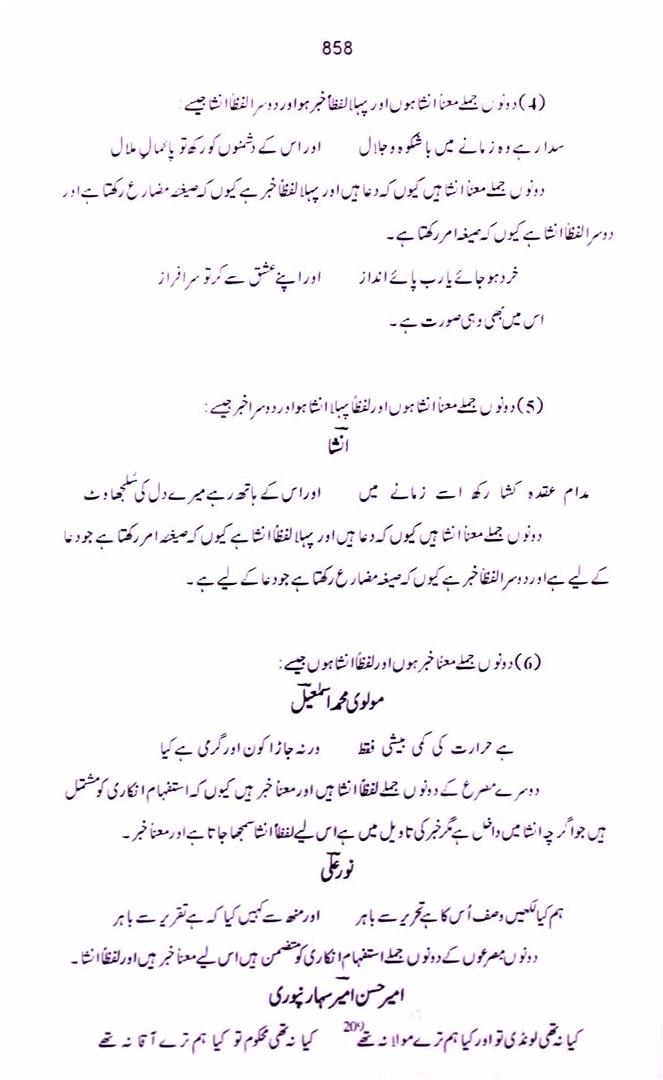 858
(4) دونوں جملے معناً انشا ہوں اور پہلا لفظاً خبر ہو اور دوسرا لفظاً انشا جیسے:
سدا رہے وہ زمانے میں با شکوہ و جلال اور اس کے دشمنوں کو رکھ تو پائمالِ ملال
دونوں جملے معناً انشا ہیں کیوں کہ دعا ہیں اور پہلا لفظاً خبر ہے کیوں کہ صیغۂ مضارع رکھتا ہے اور
دوسرا لفظاً انشا ہے کیوں کہ صیغہ امر رکھتا ہے۔
خرد ہو جائے یارب پائے انداز اور اپنے عشق سے کر تو سرافراز
اس میں بھی وہی صورت ہے۔
(5) دونوں جملے معناً انشا ہوں اور لفظاً پہلا انشا ہو اور دوسرا خبر جیسے:
انشا
مدام عقدہ کشا رکھ اسے زمانے میں اور اس کے ہاتھ رہے میرے دل کی سُلجھاوٹ
دونوں جملے معناً انشا ہیں کیوں کہ دعا ہیں اور پہلا لفظاً انشا ہے کیوں کہ صیغۂ امر رکھتا ہے جو دعا
کے لیے ہے اور دوسرا لفظاً خبر ہے کیوں کہ صیغہ مضارع رکھتا ہے جو دعا کے لیے ہے۔
(6) دونوں جملے معناً خبر ہوں اور لفظاً انشا ہوں جیسے:
مولوی محمد اسمٰعیل
ہے حرارت کی کمی بیشی فقط ورنہ جاڑا کون اور گرمی ہے کیا
دوسرے مصرع کے دونوں جملے لفظاً انشا ہیں اور معناً خبر ہیں کیوں کہ استفہام انکاری کو مشتمل
ہیں جو اگرچہ انشا میں داخل ہے مگر خبر کی تاویل میں ہے اس لیے لفظاً انشا سمجھا جاتا ہے اور معناً خبر۔
نور علی
ہم کیا لکھیں وصف اُس کا ہے تحریر سے باہر اور منھ سے کہیں کیا کہ ہے تقریر سے باہر
دونوں مصرعوں کے دونوں جملے استفہام انکاری کو متضمن ہیں اس لیے معناً خبر ہیں اور لفظاً انشا۔
امیر حسن امیر سہارنپوری
کیا نہ تھی لونڈی تو اور کیا ہم ترے مولا نہ تھے 209 کیا نہ تھی محکوم تو کیا ہم ترے آقا نہ تھے